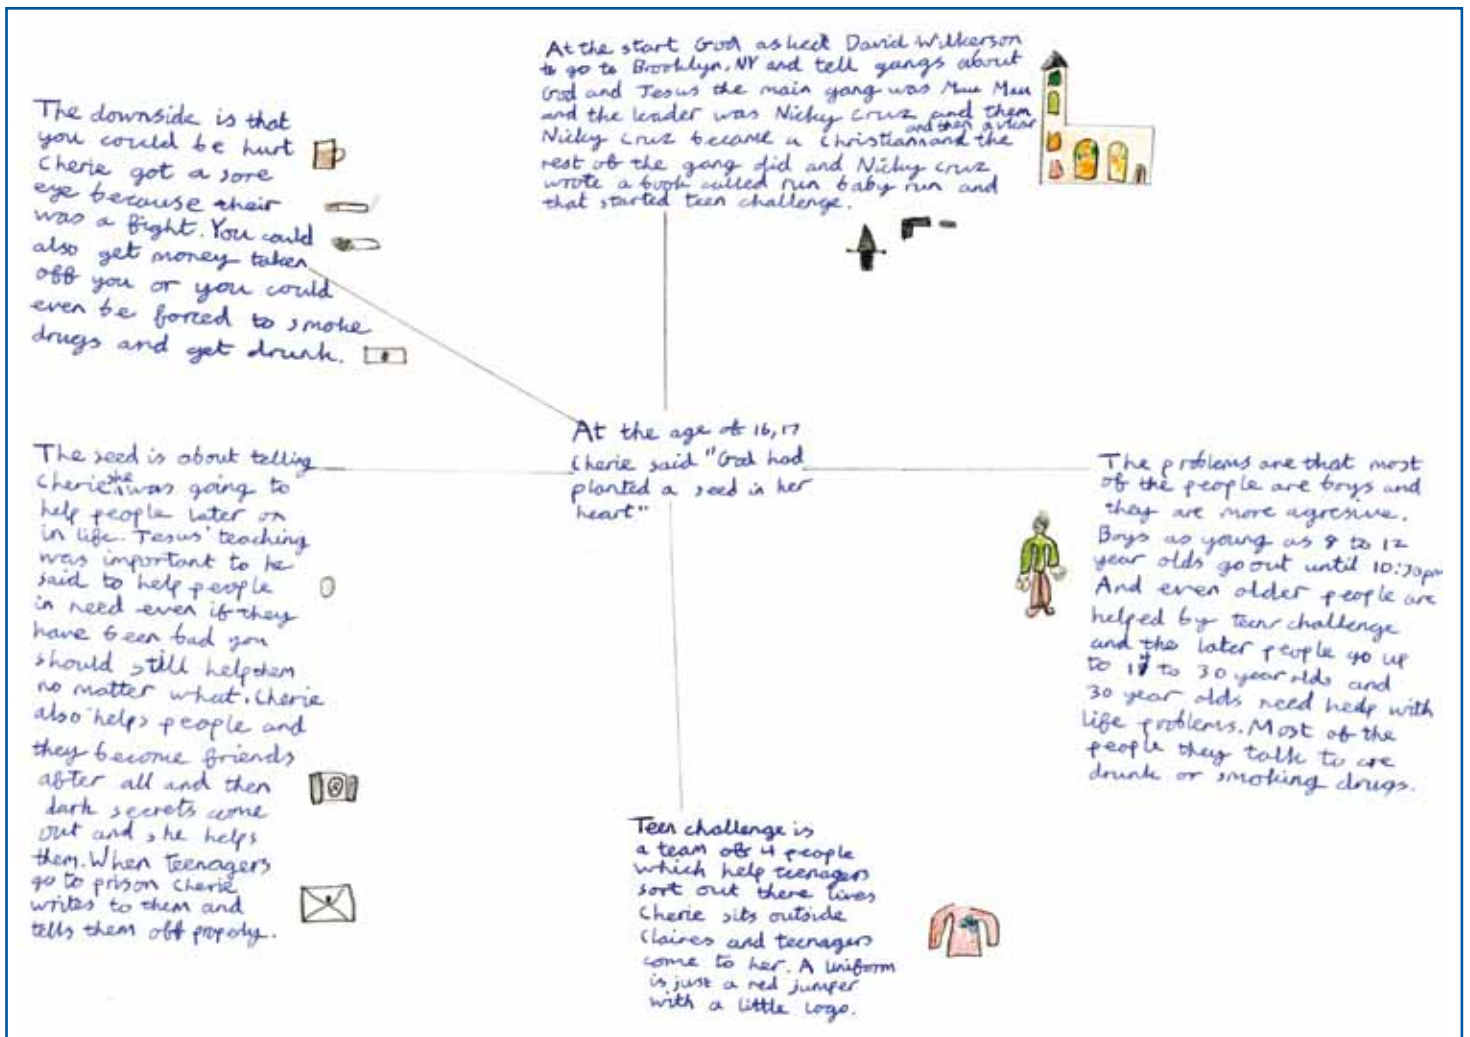 At the start God asked David Wilkerson
to go to Brooklyn, NY and tell gangs about
God and Jesus the main gang was Mau Mau
and the leader was Nicky Cruz and them
Nicky Cruz became a Christian and then a vicar and the
rest of the gang did and Nicky Cruz
wrote a book called run baby run and
that started teen challenge.
The downside is that
you could be hurt
Cherie got a sore
eye because their
was a fight. You could
also get money taken
off you or you could
even be forced to smoke
drugs and get drunk.
At the age of 16, 17
Cherie said "God had
planted a seed in her
heart"
The seed is about telling
Cherie she was going to
help people later on
in life. Jesus' teaching
was important to he
said to help people
in need even if they
have been bad you
should still help them
no matter what. Cherie
also helps people and
they become friends
after all and then
dark secrets come
out and she helps
them. When teenagers
go to prison Cherie
writes to them and
tells them off propoly.
The problems are that most
of the people are boys and
they are more agresive.
Boys as young as 8 to 12
year olds go out until 10:30pm
And even older people are
helped by teen challenge
and the later people go up
to to 30 year olds and
30 year olds need help with
life problems. Most of the
people they talk to are
drunk or smoking drugs.
Teen challenge is
a team of 4 people
which help teenagers
sort out there lives
Cherie sits outside
Claires and teenagers
come to her. A uniform
is just a red jumper
with a little logo.